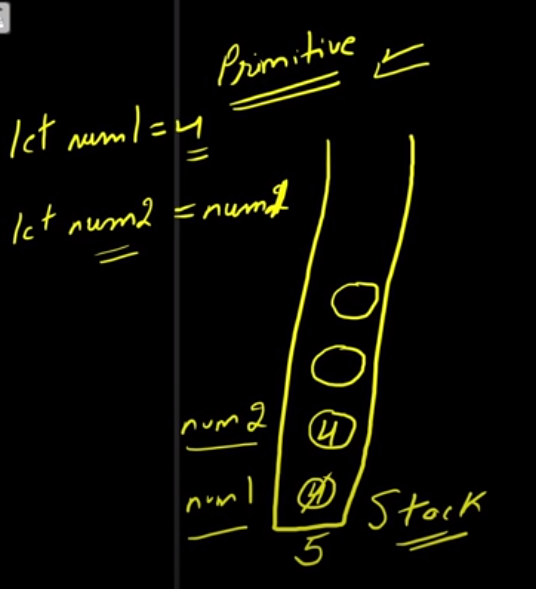 Primitive
let num1 = 4
let num2 = num1
num2
4
num1
4
Stack
5